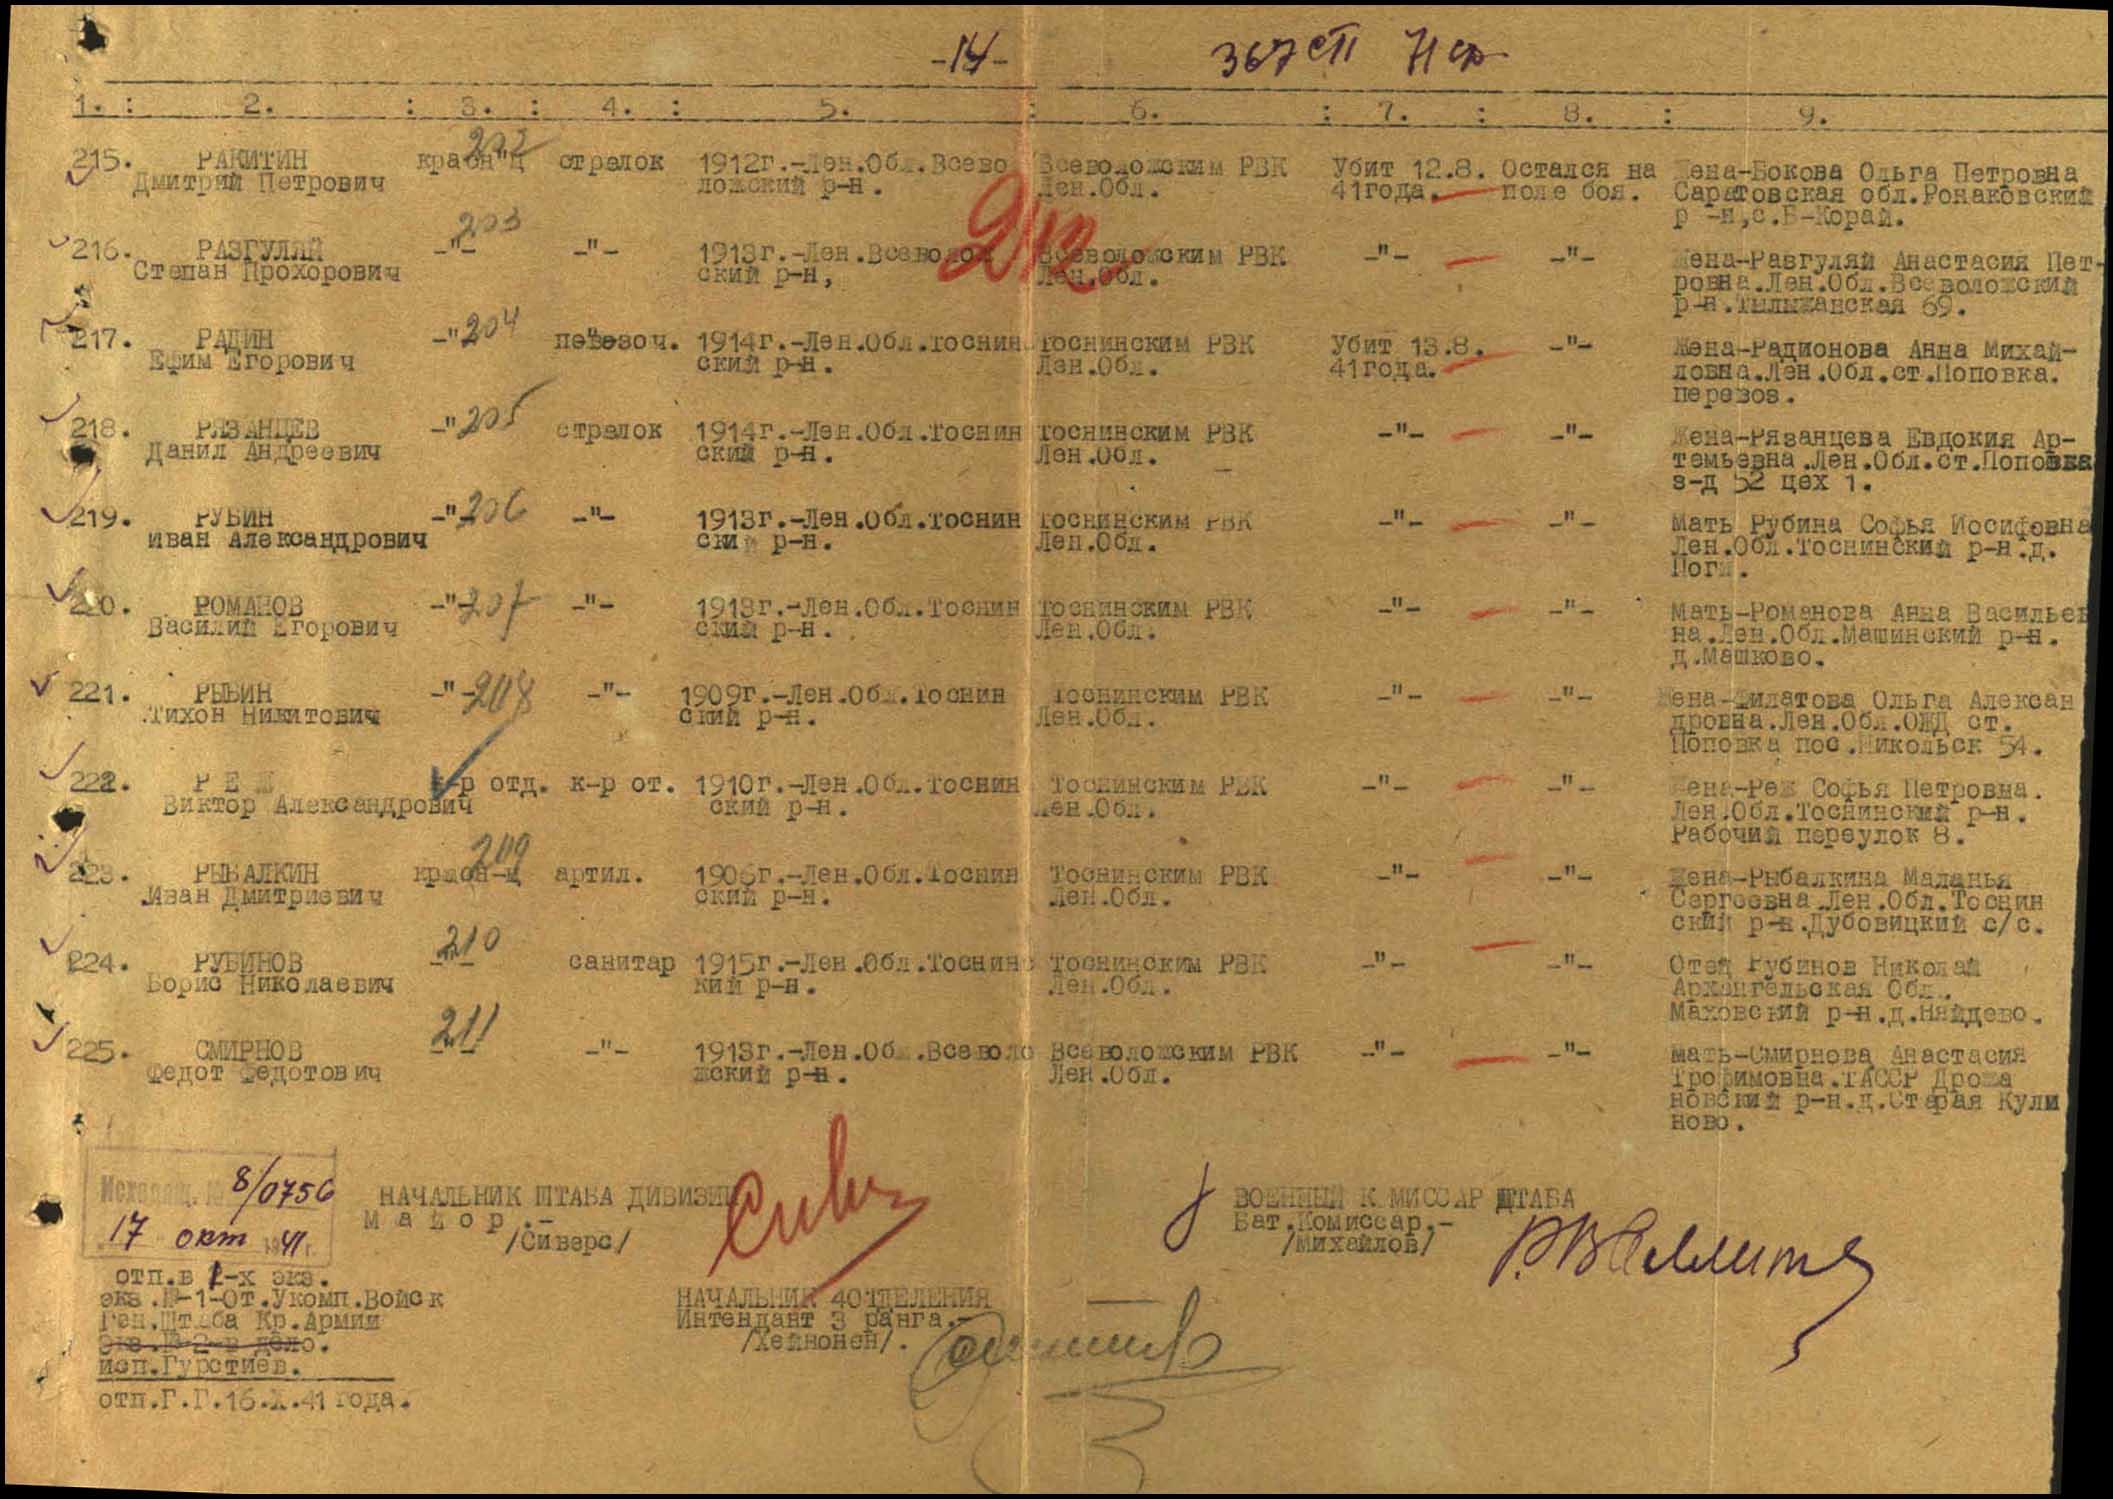 -14- 367 сп 71 сд
1. : 2. : 3. : 4. : 5. : 6. : 7. : 8. : 9.
202
215. РАКИТИН красн"ц стрелок 1912г.-Лен.Обл.Всево Всеволожским РВК Убит 12.8. Остался на Жена-Бокова Ольга Петровна
Дмитрий Петрович ложский р-н. Лен.Обл. 41года. поле боя. Саратовская обл.Ронаковский
р-н,с.Б-Корай.
203
216. РАЗГУЛЯЙ -"- -"- 1913г.-Лен.Всеволож Всеволожским РВК -"- -"- Жена-Разгуляй Анастасия Пет-
Степан Прохорович ский р-н, Лен.Обл. ровна.Лен.Обл.Всеволожский
р-н. 69.
217. РАДИН -"- 204 повозоч. 1914г.-Лен.Обл.Тоснин Тоснинским РВК Убит 13.8. -"- Жена-Радионова Анна Михай-
Ефим Егорович ский р-н. Лен.Обл. 41года. ловна.Лен.Обл.ст.Поповка.
перевоз.
218. РЯЗАНЦЕВ -"- 205 стрелок 1914г.-Лен.Обл.Тоснин Тоснинским РВК -"- -"- Жена-Рязанцева Евдокия Ар-
Данил Андреевич ский р-н. Лен.Обл. темьевна.Лен.Обл.ст.Поповка
з-д 52 цех 1.
219. РУБИН -"- 206 -"- 1913г.-Лен.Обл.Тоснин Тоснинским РВК -"- -"- Мать Рубина Софья Иосифовна
Иван Александрович ский р-н. Лен.Обл. Лен.Обл.Тоснинский р-н.д.
Поги.
220. РОМАНОВ -"- 207 -"- 1913г.-Лен.Обл.Тоснин Тоснинским РВК -"- -"- Мать-Романова Анна Васильев
Василий Егорович ский р-н. Лен.Обл. на.Лен.Обл.Машинский р-н.
д.Машково.
221. РЫБИН -"- 208 -"- 1909г.-Лен.Обл.Тоснин Тоснинским РВК -"- -"- Жена-Филатова Ольга Алексан
Тихон Никитович ский р-н. Лен.Обл. дровна.Лен.Обл.ОЖД ст.
Поповка пос.Никольск 54.
222. Р Е Ж к-р отд. к-р от. 1910г.-Лен.Обл.Тоснин Тоснинским РВК -"- -"- Жена-Реж Софья Петровна.
Виктор Александрович ский р-н. Лен.Обл. Лен.Обл.Тоснинский р-н.
Рабочий переулок 8.
209
223. РЫБАЛКИН красн-ц артил. 1906г.-Лен.Обл.Тоснин Тоснинским РВК -"- -"- Жена-Рыбалкина Маланья
Иван Дмитриевич ский р-н. Лен.Обл. Сергеевна.Лен.Обл.Тоснин
ский р-н.Дубовицкий с/с.
210
224. РУБИНОВ -"- санитар 1915г.-Лен.Обл.Тоснинс Тоснинским РВК -"- -"- Отец Рубинов Николай
Борис Николаевич кий р-н. Лен.Обл. Архангельская Обл.
Маховский р-н.д.Няйдево.
211
225. СМИРНОВ -"- -"- 1913г.-Лен.Обл.Всеволо Всеволожским РВК -"- -"- Мать-Смирнова Анастасия
Федот Федотович жский р-н. Лен.Обл. Трофимовна.ТАССР Дрожа
новский р-н.д.Старая Кули
ново.
Исходящ. № 8/0756
17 окт 1941г.
НАЧАЛЬНИК ШТАБА ДИВИЗИИ
М а й о р .-
/Сиверс/
ВОЕННЫЙ К МИССАР ШТАБА
Бат.Комиссар.-
/Михайлов/
отп.в 2-х экз.
экз.№-1-От.Укомп.Войск
Ген.Штаба Кр.Армии
экз.№-2-в дело.
исп.Гурстиев.
отп.Г.Г.16.X.41 года.
НАЧАЛЬНИК 4ОТДЕЛЕНИЯ
Интендант 3 ранга.-
/Хейнонен/.